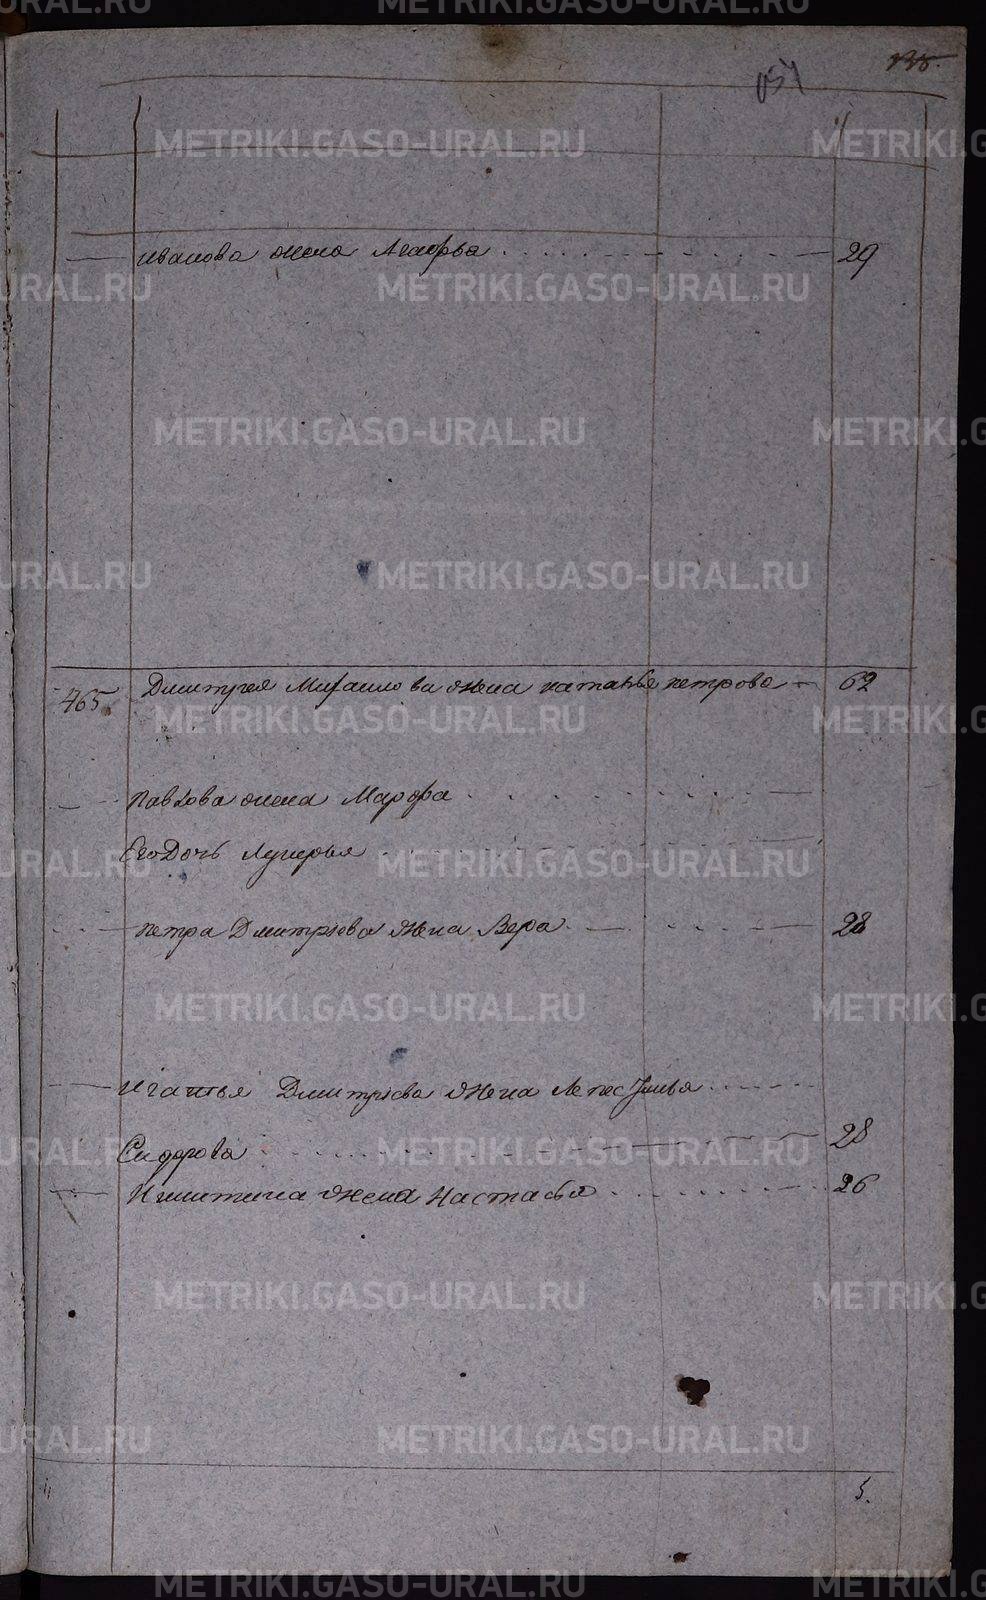 135.
Иванова жена Агафья 29
465. Дмитрея Михаилова жена наталья петрова 62
павлова жена Марфа
Его Дочь Лукерья
петра Дмитриева жена Вера 28
игатья Дмитриева жена
Сидорова 28
Никитина жена настасья 26
5.
METRIKI.GASO-URAL.RU